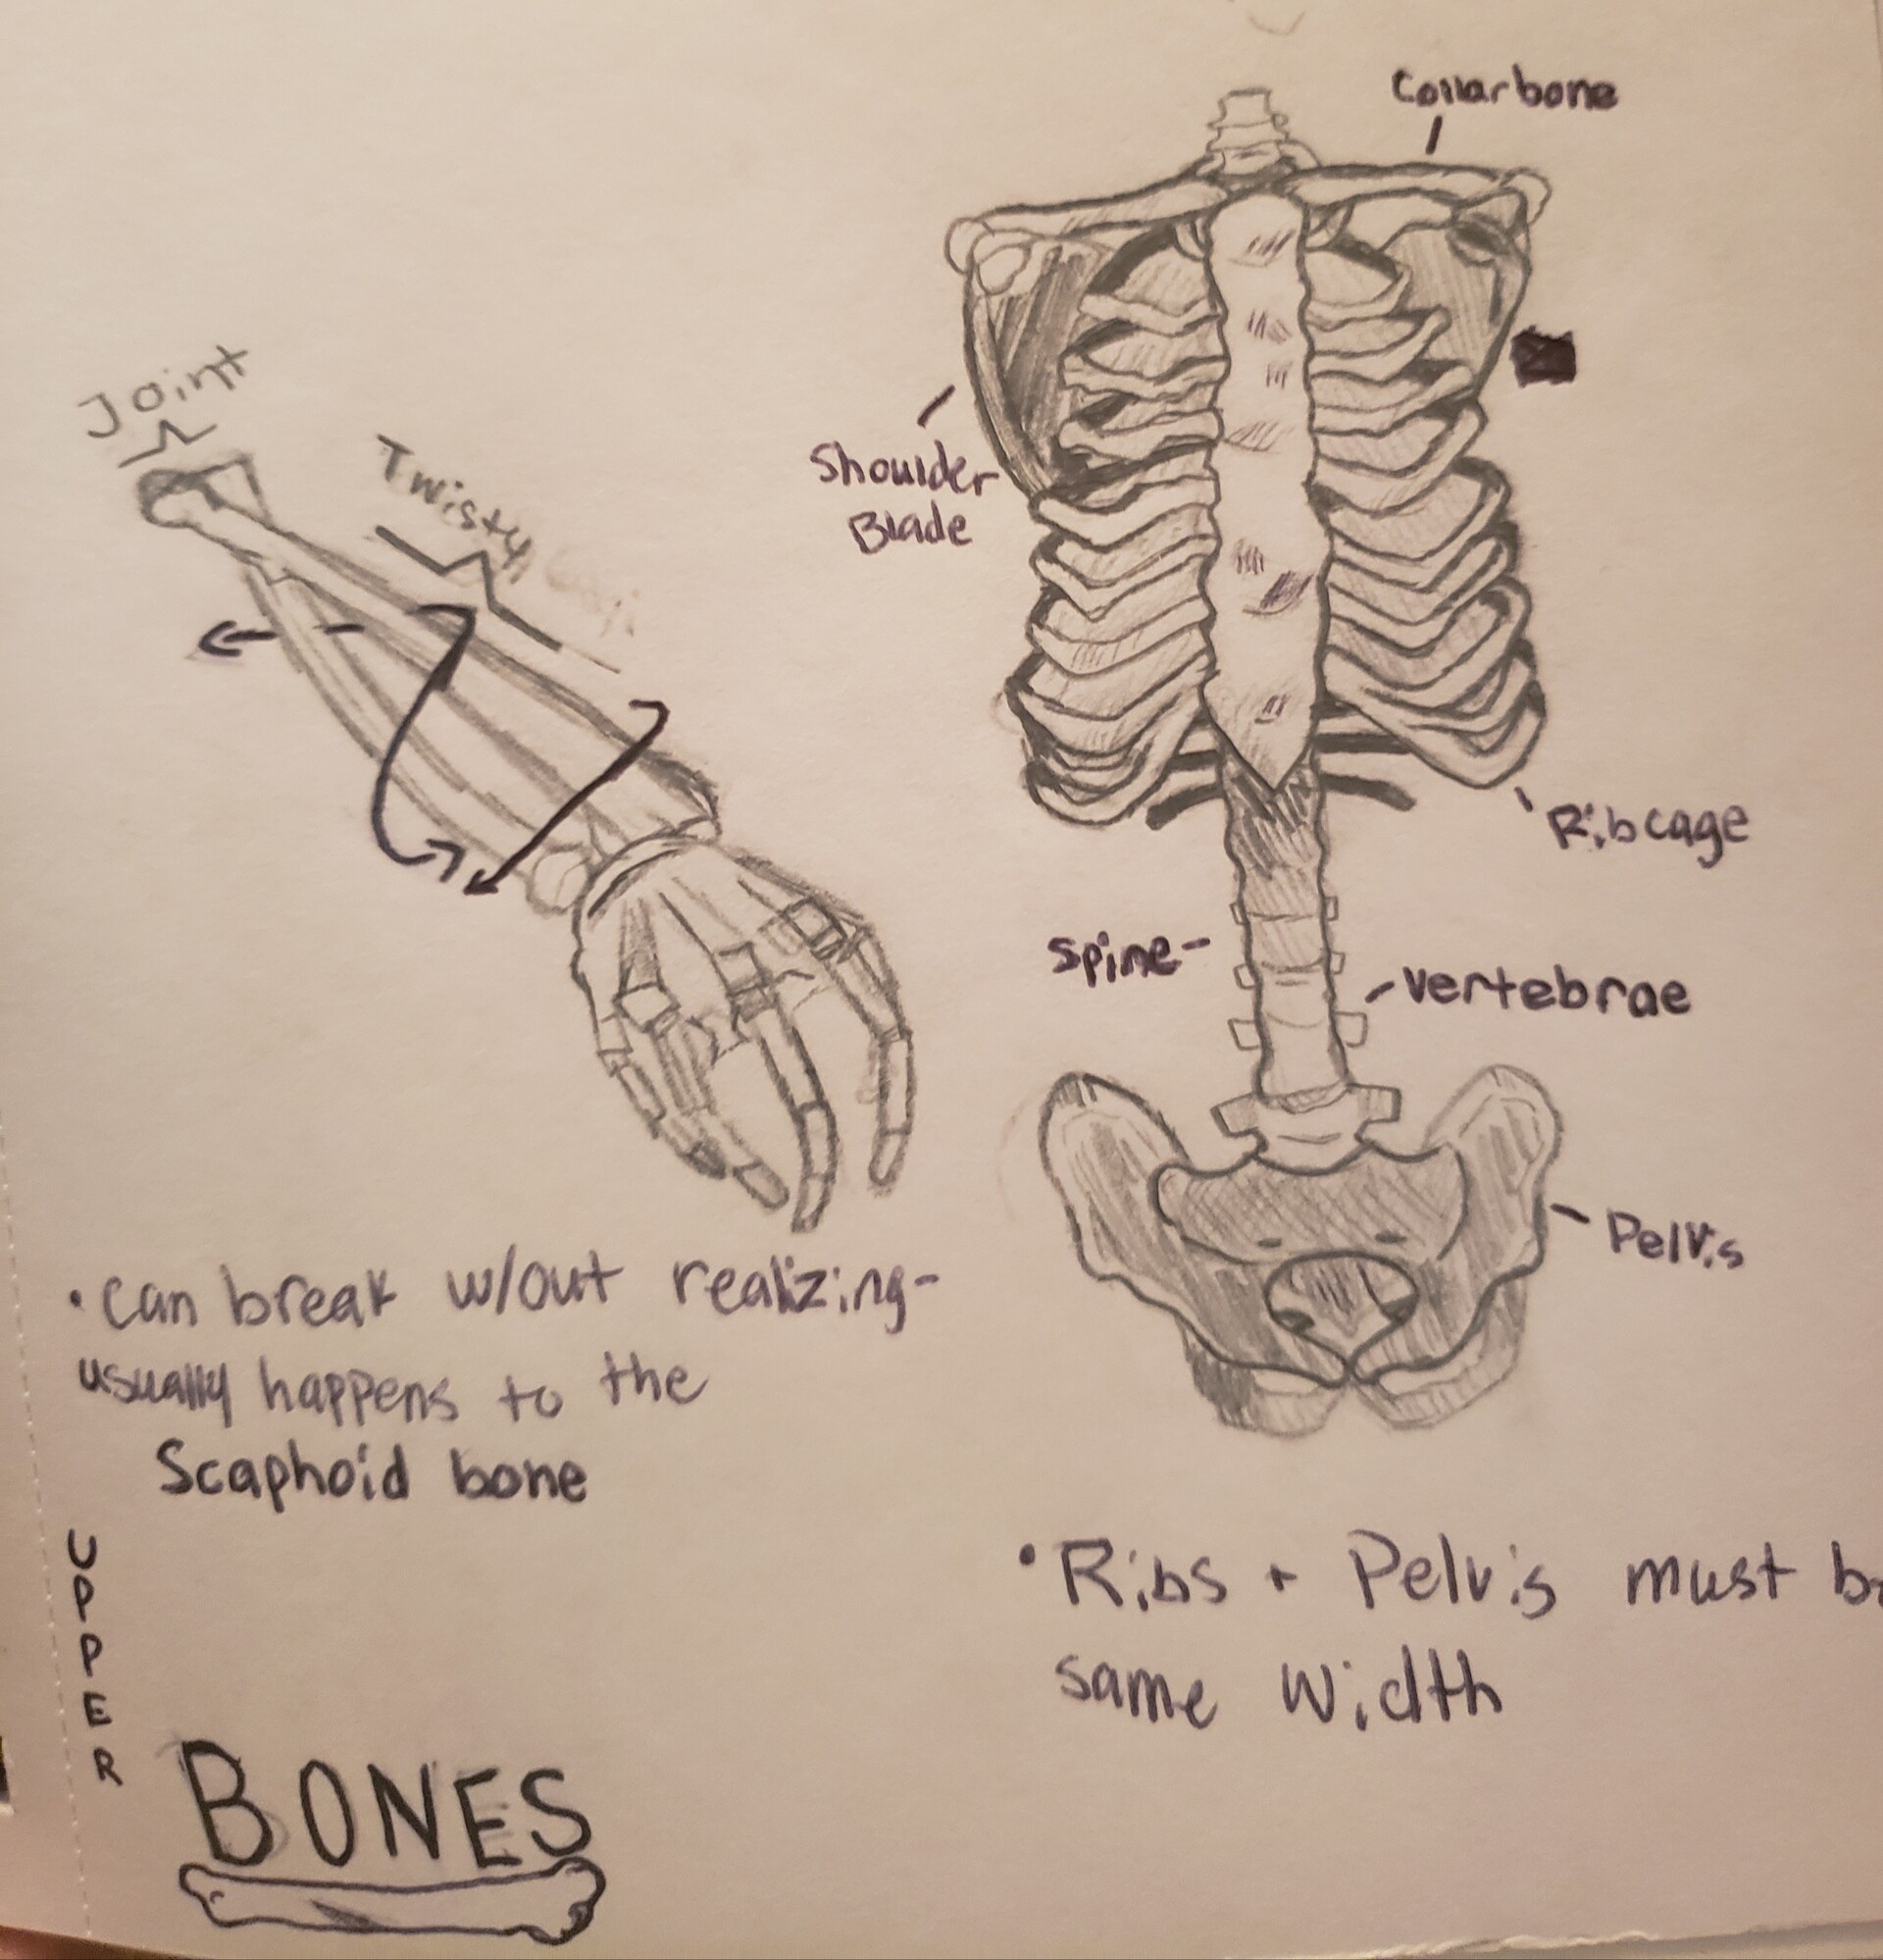 Collarbone
Joint
Twisty
Shoulder
Blade
Ribcage
Spine-
vertebrae
Pelvis
• can break w/out realizing-
usually happens to the
Scaphoid bone
• Ribs + Pelvis must
same width
UPPER
BONES